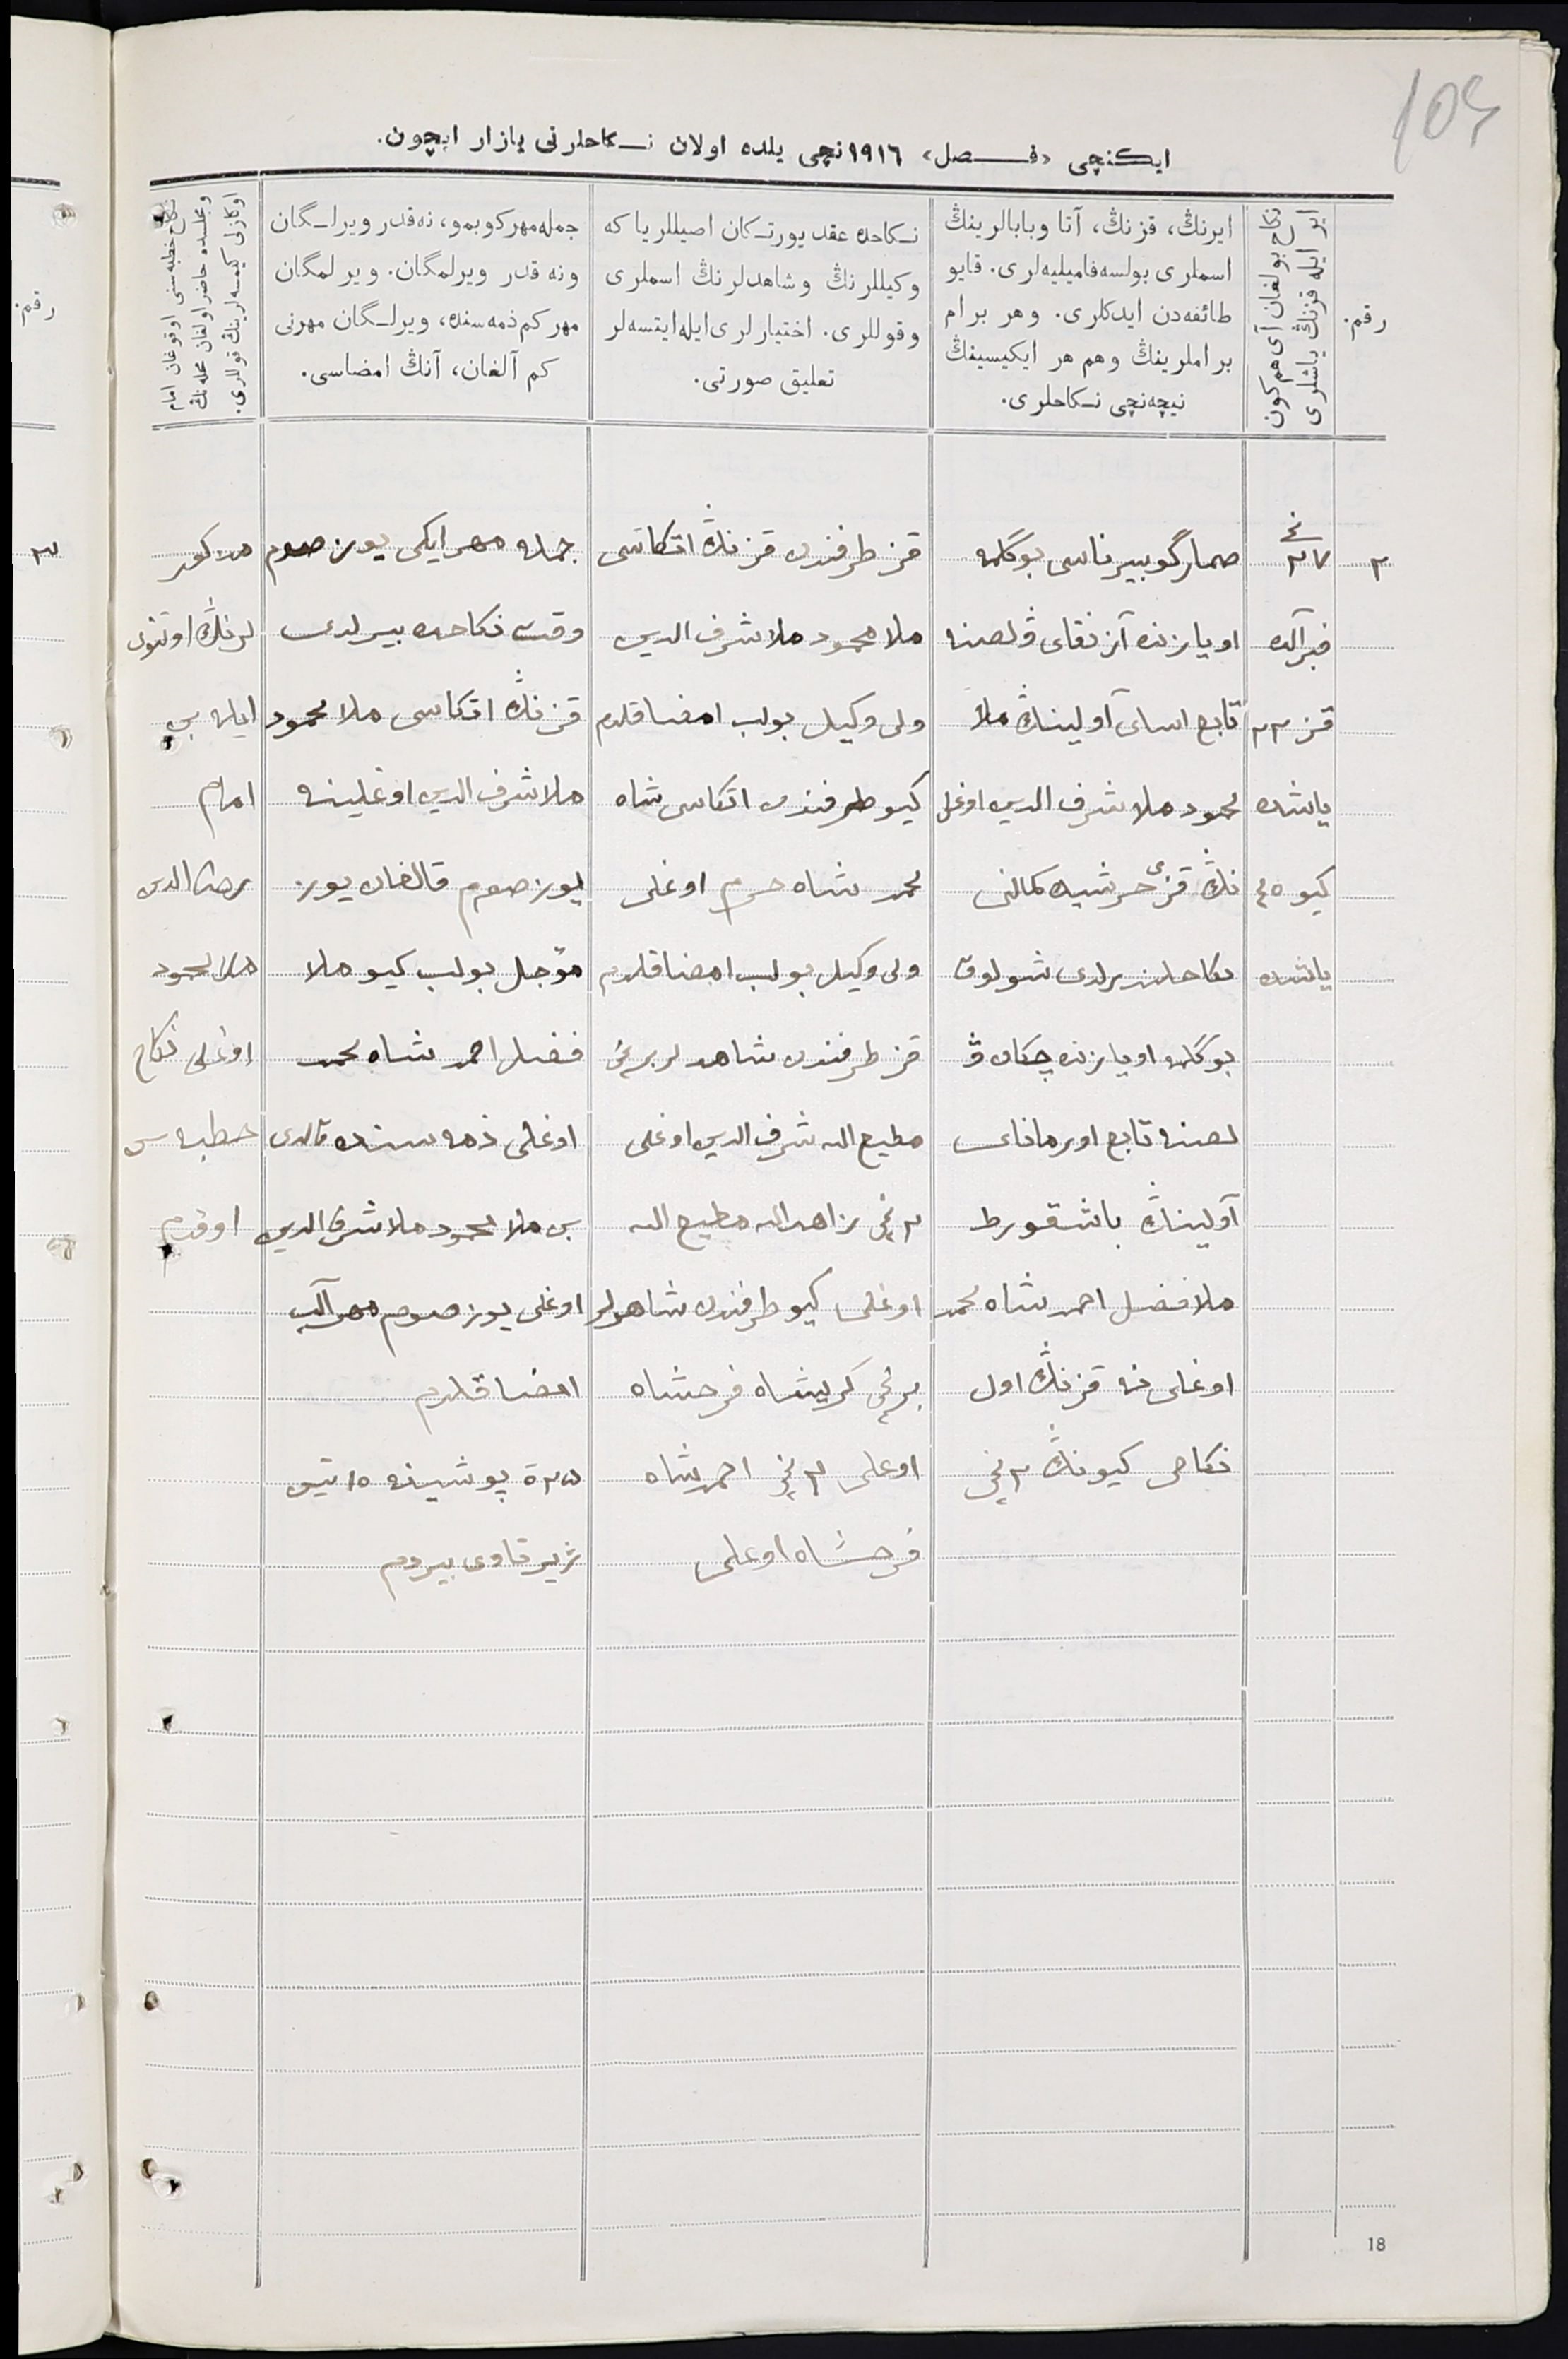 ایکنچی «فصل» ١٩١٦ نچی یلده اولان نکاحلرنی یازار ایچون.
رقم.
نکاح بولغان آی هم کون
ایر ایله قزنڭ یاشلری
ایرنڭ، قزنڭ، آتا وبابالرینڭ
اسملری بولسه فامیلیه‌لری. قایو
طائفه‌دن ایدکلری. وهر برام
براملرینڭ وهم هر ایکیسینڭ
نیچه‌نچی نکاحلری.
نکاحده عقد یورتکان اصیللر یا که
وکیللرنڭ وشاهدلرنڭ اسملری
وقوللری. اختیارلری ایله ایتسه‌لر
تعلیق صورتی.
جمله مهر کوبمو، نه قدر ویرلگان
ونه قدر ویرلمگان. ویرلمگان
مهر کم ذمه سنده، ویرلگان مهرنی
کم آلغان، آنڭ امضاسی.
نکاح خطبه سنی اوقوغان امام
ومجلسده حاضر اولغان محله نڭ
اوکازلی کیمسه لرینڭ قوللری.
٢
٢٧ نچی
فبرآلده
قز ٢٢
یاشده
کیو ٤٥
یاشده
صمار گوبیرناسی بوگلمه
اویازنده آزنقای ڤلصنه
تابع اسای آولینڭ ملا
محمود ملا شرف الدین اوغلی
نڭ قزی خرشیده کمالنی
نکاحلندرلدی شولوق
بوگلمه اویازنده چکان ڤ
لصنه تابع اورمانای
آولینڭ باشقورط
ملا فضل احمد شاه محمد
اوغلی نه قزنڭ اول
نکاحی کیونڭ ٢ نچی
قز طرفندن قزنڭ اتکاسی
ملا محمود ملا شرف الدین
ولی وکیل بولب امضا قلدم
کیو طرفندن اتکاسی شاه
محمد شاه حرم اوغلی
ولی وکیل بولب امضا قلدم
قز طرفندن شاهدلر برنچی
مطیع الله شرف الدین اوغلی
٢ نچی زاهد الله مطیع الله
اوغلی کیو طرفندن شاهدلر
برنچی کریشاه فرحشاه
اوغلی ٢ نچی احمدشاه
فرحشاه اوغلی
جمله مهر ایکی یوز صوم
وقت نکاحده بیرلدی
قزنڭ اتکاسی ملا محمود
ملا شرف الدین اوغلینه
یوز صوم قالغان یوز
مؤجل بولب کیو ملا
فضل احمد شاه محمد
اوغلی ذمه سنده قالدی
من ملا محمود ملا شرف الدین
اوغلی یوز صوم مهر آلب
امضا قلدم
پوشینه ١٥ تین
بیردم
مذکور
لرنڭ اوتنوی
ایله من
امام
ملا محمود
اوغلی نکاح
خطبه سن
اوقدم
رقم.
٣
18